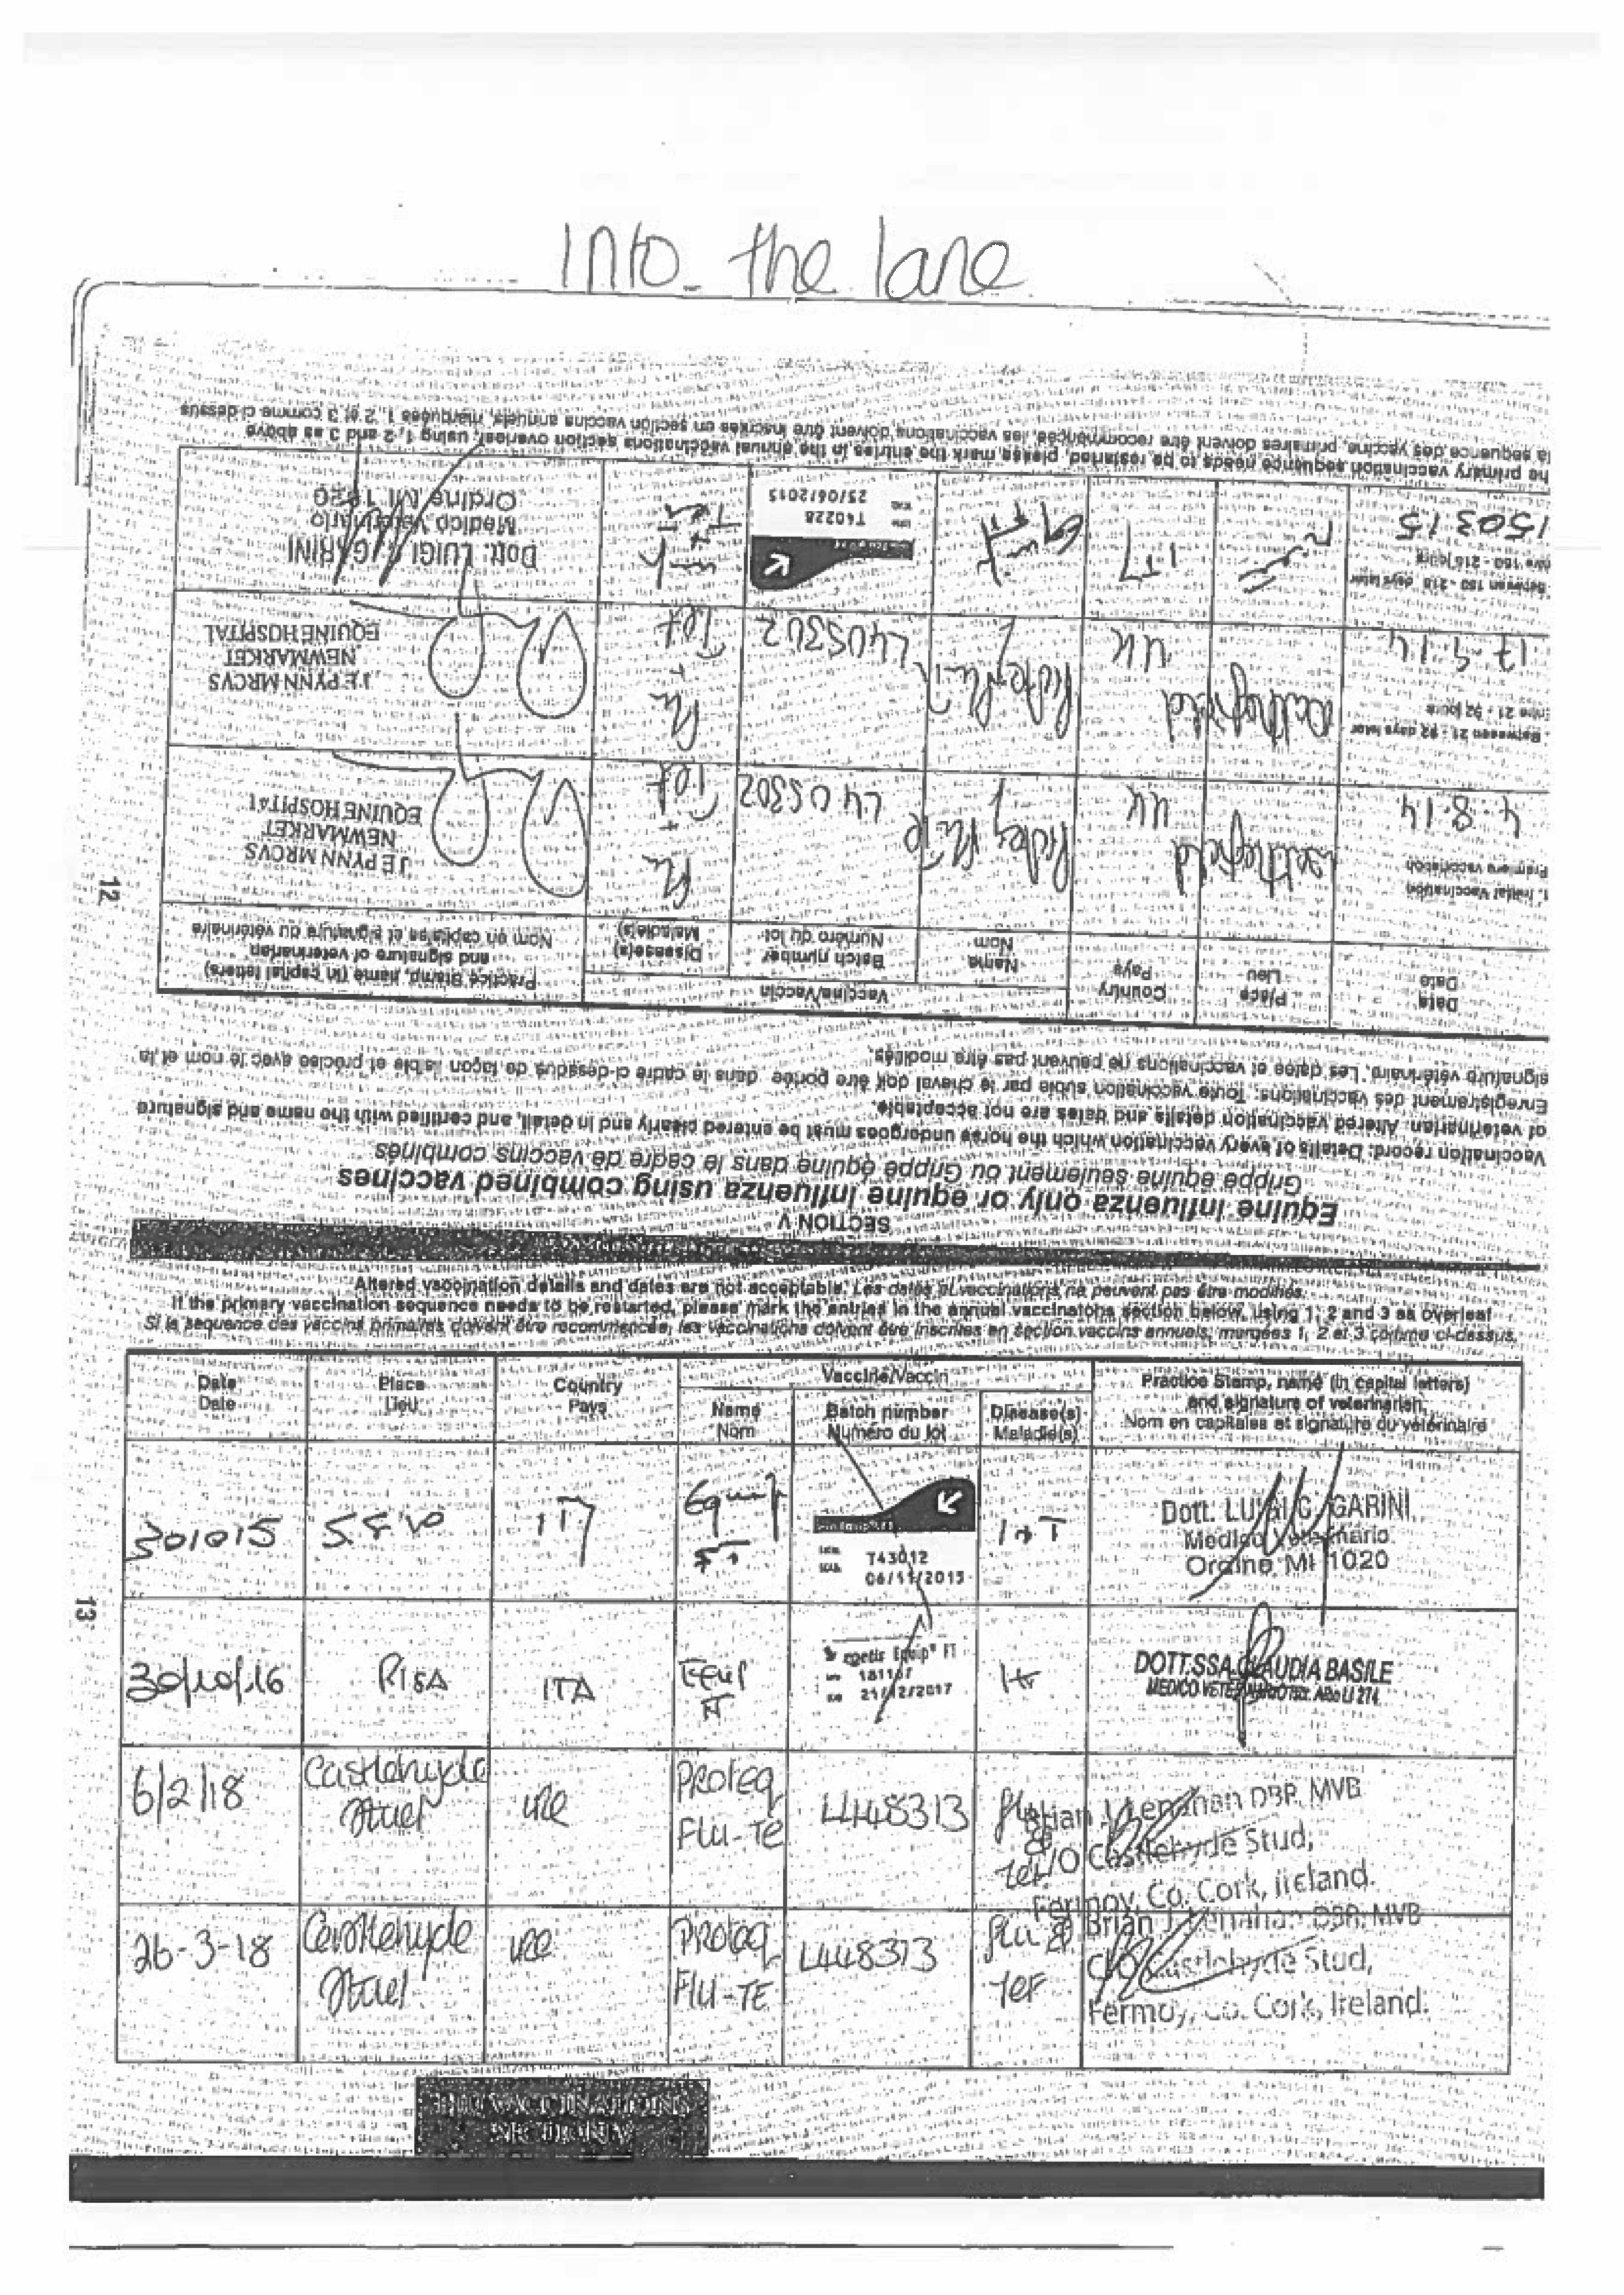 Into the lane
12
SECTION V
Equine influenza only or equine influenza using combined vaccines
Grippe équine seulement ou Grippe équine dans le cadre de vaccins combinés
Vaccination record: Details of every vaccination which the horse undergoes must be entered clearly and in detail, and certified with the name and signature
of veterinarian. Altered vaccination details and dates are not acceptable.
Enregistrement des vaccinations: Toute vaccination subie par le cheval doit être portée dans le cadre ci-dessous de façon lisible et précise avec le nom et la
signature vétérinaire. Les dates et vaccinations ne peuvent pas être modifiés.
Date Place Country Vaccine/Vaccin Practice Stamp, name (in capital letters)
Date Lieu Pays Name Batch number Disease(s) and signature of veterinarian
Nom Numéro du lot Maladie(s) Nom en capitales et signature du vétérinaire
1. Initial Vaccination
Première vaccination
4.8.14 UK L405302 Flu + Tet J E PYNN MRCVS
NEWMARKET
EQUINE HOSPITAL
Between 21 - 92 days later
Entre 21 - 92 jours
17.9.14 UK L405302 Flu + Tet J E PYNN MRCVS
NEWMARKET
EQUINE HOSPITAL
Between 150 - 215 days later
150 - 215 jours
150315 ITY T40228 Dott. LUIGI C. GARINI
25/06/2015 Medico Veterinario
Ordine MI 1020
he primary vaccination sequence needs to be restarted, please mark the entries in the annual vaccinations section overleaf, using 1, 2 and 3 as above
la sequence des vaccins primaires doivent être recommencées, les vaccinations doivent être inscrites en section vaccins annuels, marquées 1, 2 et 3 comme ci-dessus
Altered vaccination details and dates are not acceptable. Les dates et vaccinations ne peuvent pas être modifiés.
If the primary vaccination sequence needs to be restarted, please mark the entries in the annual vaccinatons section below, using 1, 2 and 3 as overleaf
Si la sequence des vaccins primaires doivent être recommencées, les vaccinations doivent être inscrites en section vaccins annuels, marquées 1, 2 et 3 comme ci-dessus.
13
Date Place Country Vaccine/Vaccin Practice Stamp, name (in capital letters)
Date Lieu Pays Name Batch number Disease(s) and signature of veterinarian
Nom Numéro du lot Maladie(s) Nom en capitales et signature du vétérinaire
301015 ITY Equip FT T43012 Dott. LUIGI C. GARINI
06/11/2015 Medico Veterinario
Ordine MI 1020
30/10/16 PISA ITA Zoetis Equip FT DOTT.SSA CLAUDIA BASILE
181167
21/12/2017
6/2/18 Castlehyde Stud IRE PROTEQ FLU-TE L448313 Flu & Tet Brian J Lenahan DBR, MVB
C/O Castlehyde Stud,
Fermoy, Co. Cork, Ireland.
26-3-18 Castlehyde Stud IRE PROTEQ FLU-TE L448313 Flu & Tet Brian J Lenahan DBR, MVB
C/O Castlehyde Stud,
Fermoy, Co. Cork, Ireland.
FLU VACCINATIONS
SECTION V